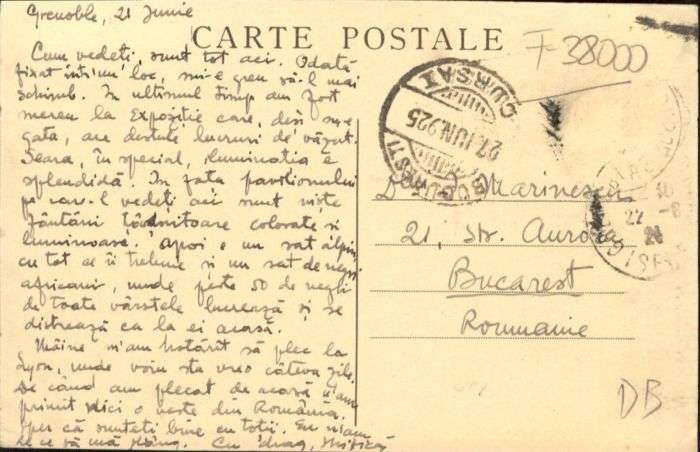 Grenoble, 21 Junie
CARTE POSTALE
F 38000
Cum vedeți, sunt tot aci. Odată
fixat într'un loc, mi-e greu să-l mai
schimb. In ultimul timp am fost
mereu la Expoziție care, deși
gata, are destule lucruri de văzut.
Seara, în special, iluminația e
splendidă. In fața pavilionului
pe care-l vedeți aci sunt niște
fântâni țâșnitoare colorate și
luminoase. Apoi e un sat alpin,
cu tot ce îi trebuie și un sat de negri
africani, unde peste 50 de negri
de toate vârstele lucrează și se
distrează ca la ei acasă.
Mâine m'am hotărît să plec la
Lyon, unde voiu sta vreo câteva zile.
De când am plecat de acasă n'am
primit nici o veste din România.
Sper că sunteți bine cu toții. Eu n'am
de ce să mă plâng. Cu drag,
BUCUREȘTI
27 IUN 925
CURSA I
Marinescu
21, Str. Aurora
Bucarest
Roumanie
DB